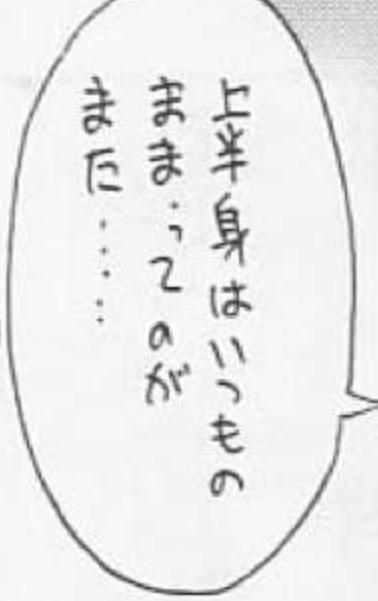 上半身はいつもの
ままってのが
また……